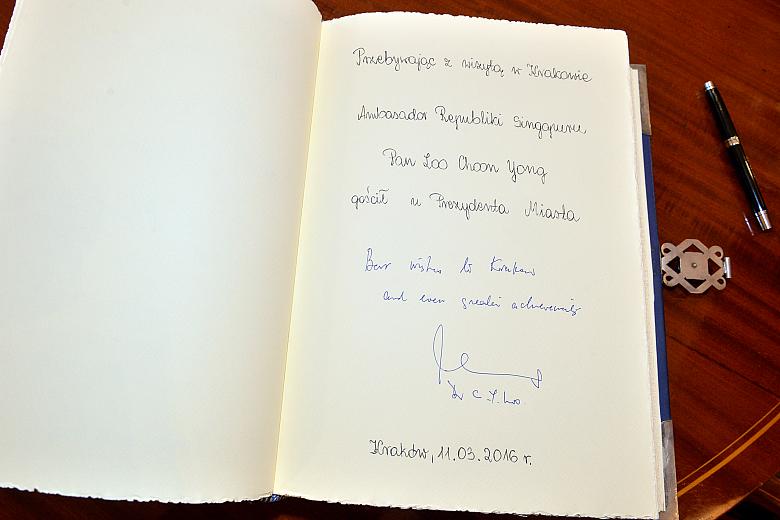 Przebywając z wizytą w Krakowie
Ambasador Republiki Singapuru,
Pan Loo Choon Yong
gościł u Prezydenta Miasta
Best wishes to Krakow
and even greater achievements
Dr C. Y. Loo.
Kraków, 11.03.2016 r.